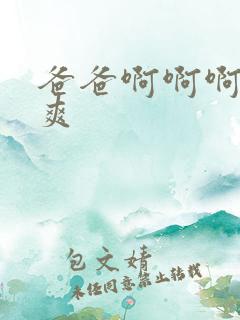 爸爸啊啊啊
爽
包文婧
未经同意禁止转载